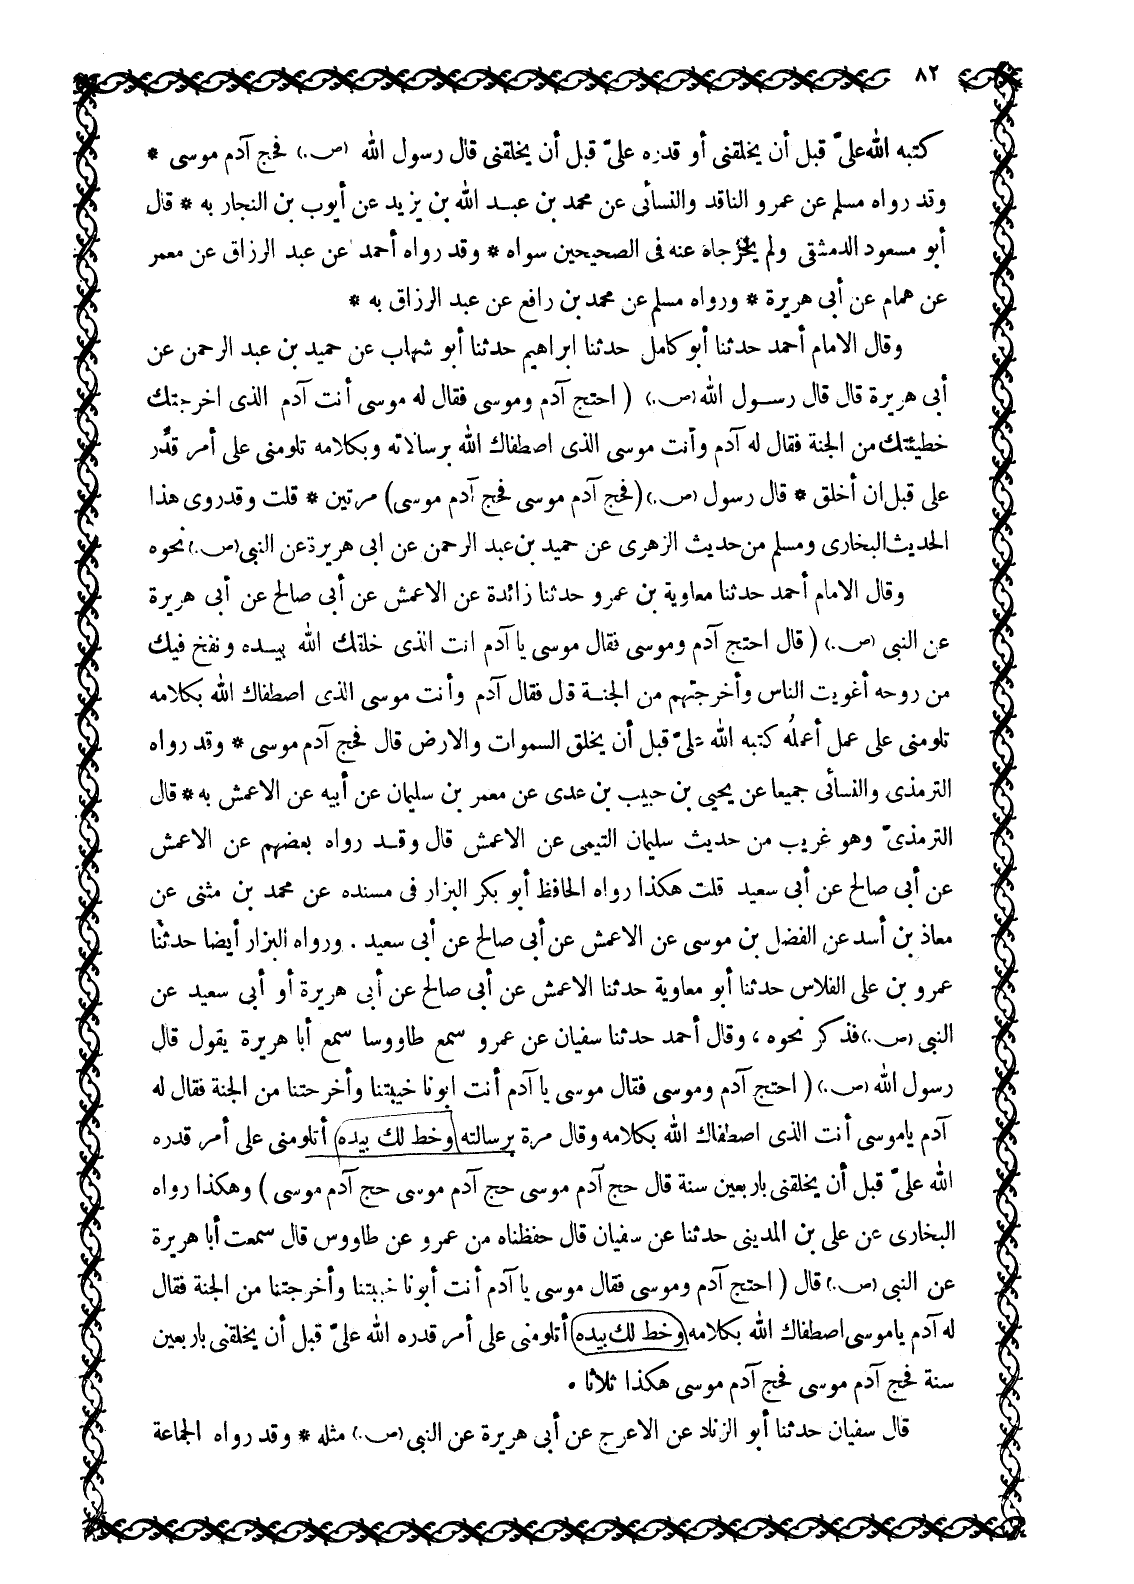 ٨٢
كتبه الله علىّ قبل أن يخلقنى أو قدره علىّ قبل أن يخلقنى قال رسول الله (ص.) فحج آدم موسى *
وقد رواه مسلم عن عمرو الناقد والنسأئى عن محمد بن عبد الله بن يزيد عن أيوب بن النجار به * قال
أبو مسعود الدمشقى ولم يخرجاه عنه فى الصحيحين سواه * وقد رواه أحمد عن عبد الرزاق عن معمر
عن همام عن أبى هريرة * ورواه مسلم عن محمد بن رافع عن عبد الرزاق به *
وقال الامام أحمد حدثنا أبو كامل حدثنا ابراهيم حدثنا أبو شهاب عن حميد بن عبد الرحمن عن
أبى هريرة قال قال رسول الله (ص.) ( احتج آدم وموسى فقال له موسى أنت آدم الذى اخرجتك
خطيئتك من الجنة فقال له آدم وأنت موسى الذى اصطفاك الله برسالاته وبكلامه تلومنى على أمر قدّر
على قبل ان أخلق * قال رسول (ص.) (فحج آدم موسى فحج آدم موسى) مرتين * قلت وقد روى هذا
الحديث البخارى ومسلم من حديث الزهرى عن حميد بن عبد الرحمن عن ابى هريرة عن النبى (ص.) نحوه
وقال الامام أحمد حدثنا معاوية بن عمرو حدثنا زائدة عن الاعمش عن أبى صالح عن أبى هريرة
عن النبى (ص.) ( قال احتج آدم وموسى فقال موسى يا آدم انت الذى خلقك الله بيده ونفخ فيك
من روحه أغويت الناس وأخرجتهم من الجنة قال فقال آدم وأنت موسى الذى اصطفاك الله بكلامه
تلومنى على عمل أعملُه كتبه الله علىّ قبل أن يخلق السموات والارض قال فحج آدم موسى * وقد رواه
الترمذى والنسأئى جميعا عن يحيى بن حبيب بن عدى عن معمر بن سليمان عن أبيه عن الاعمش به * قال
الترمذىّ وهو غريب من حديث سليمان التيمى عن الاعمش قال وقد رواه بعضهم عن الاعمش
عن أبى صالح عن أبى سعيد قلت هكذا رواه الحافظ أبو بكر البزار فى مسنده عن محمد بن مثنى عن
معاذ بن أسد عن الفضل بن موسى عن الاعمش عن أبى صالح عن أبى سعيد . ورواه البزار أيضا حدثنا
عمرو بن على الفلاس حدثنا أبو معاوية حدثنا الاعمش عن أبى صالح عن أبى هريرة أو أبى سعيد عن
النبى (ص.) فذكر نحوه ، وقال أحمد حدثنا سفيان عن عمرو سمع طاووسا سمع أبا هريرة يقول قال
رسول الله (ص.) ( احتج آدم وموسى فقال موسى يا آدم أنت ابونا خيبتنا وأخرجتنا من الجنة فقال له
آدم ياموسى أنت الذى اصطفاك الله بكلامه وقال مرة برسالته وخط لك بيده أتلومنى على أمر قدره
الله علىّ قبل أن يخلقنى باربعين سنة قال حج آدم موسى حج آدم موسى حج آدم موسى ) وهكذا رواه
البخارى عن على بن المدينى حدثنا عن سفيان قال حفظناه من عمرو عن طاووس قال سمعت أبا هريرة
عن النبى (ص.) قال ( احتج آدم وموسى فقال موسى يا آدم أنت أبونا خيبتنا وأخرجتنا من الجنة فقال
له آدم ياموسى اصطفاك الله بكلامه وخط لك بيده أتلومنى على أمر قدره الله علىّ قبل أن يخلقنى باربعين
سنة فحج آدم موسى فحج آدم موسى هكذا ثلاثا .
قال سفيان حدثنا أبو الزناد عن الاعرج عن أبى هريرة عن النبى (ص.) مثله * وقد رواه الجماعة